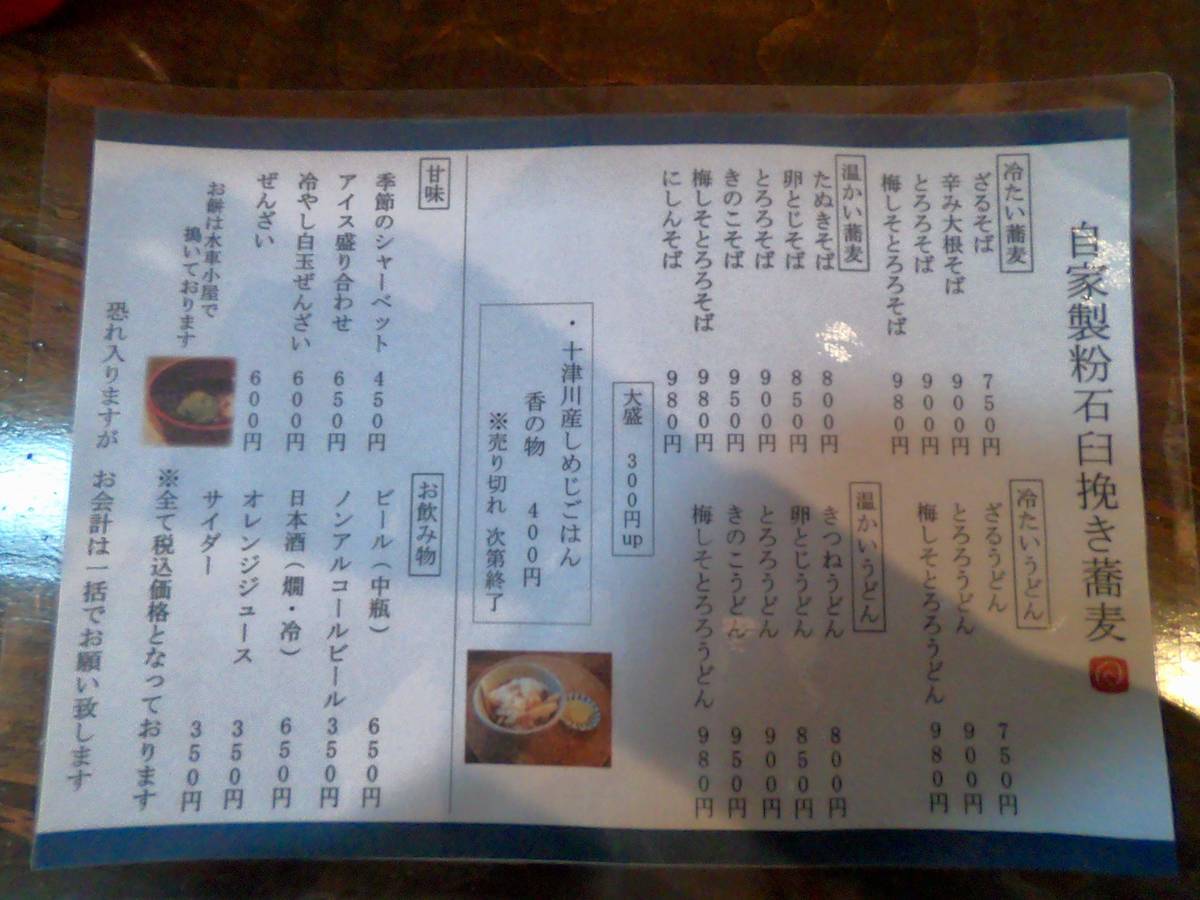 自家製粉石臼挽き蕎麦
冷たい蕎麦
ざるそば 750円
辛み大根そば 900円
とろろそば 900円
梅しそとろろそば 980円
温かい蕎麦
たぬきそば 800円
卵とじそば 850円
とろろそば 900円
きのこそば 950円
梅しそとろろそば 980円
にしんそば 980円
冷たいうどん
ざるうどん 750円
とろろうどん 900円
梅しそとろろうどん 980円
温かいうどん
きつねうどん 800円
卵とじうどん 850円
とろろうどん 900円
きのこうどん 950円
梅しそとろろうどん 980円
大盛 300円up
・十津川産しめじごはん
香の物 400円
※売り切れ 次第終了
甘味
季節のシャーベット 450円
アイス盛り合わせ 650円
冷やし白玉ぜんざい 600円
ぜんざい 600円
お餅は水車小屋で
搗いております
お飲み物
ビール(中瓶) 650円
ノンアルコールビール 350円
日本酒(燗・冷) 650円
オレンジジュース 350円
サイダー 350円
※全て税込価格となっております
恐れ入りますが お会計は一括でお願い致します